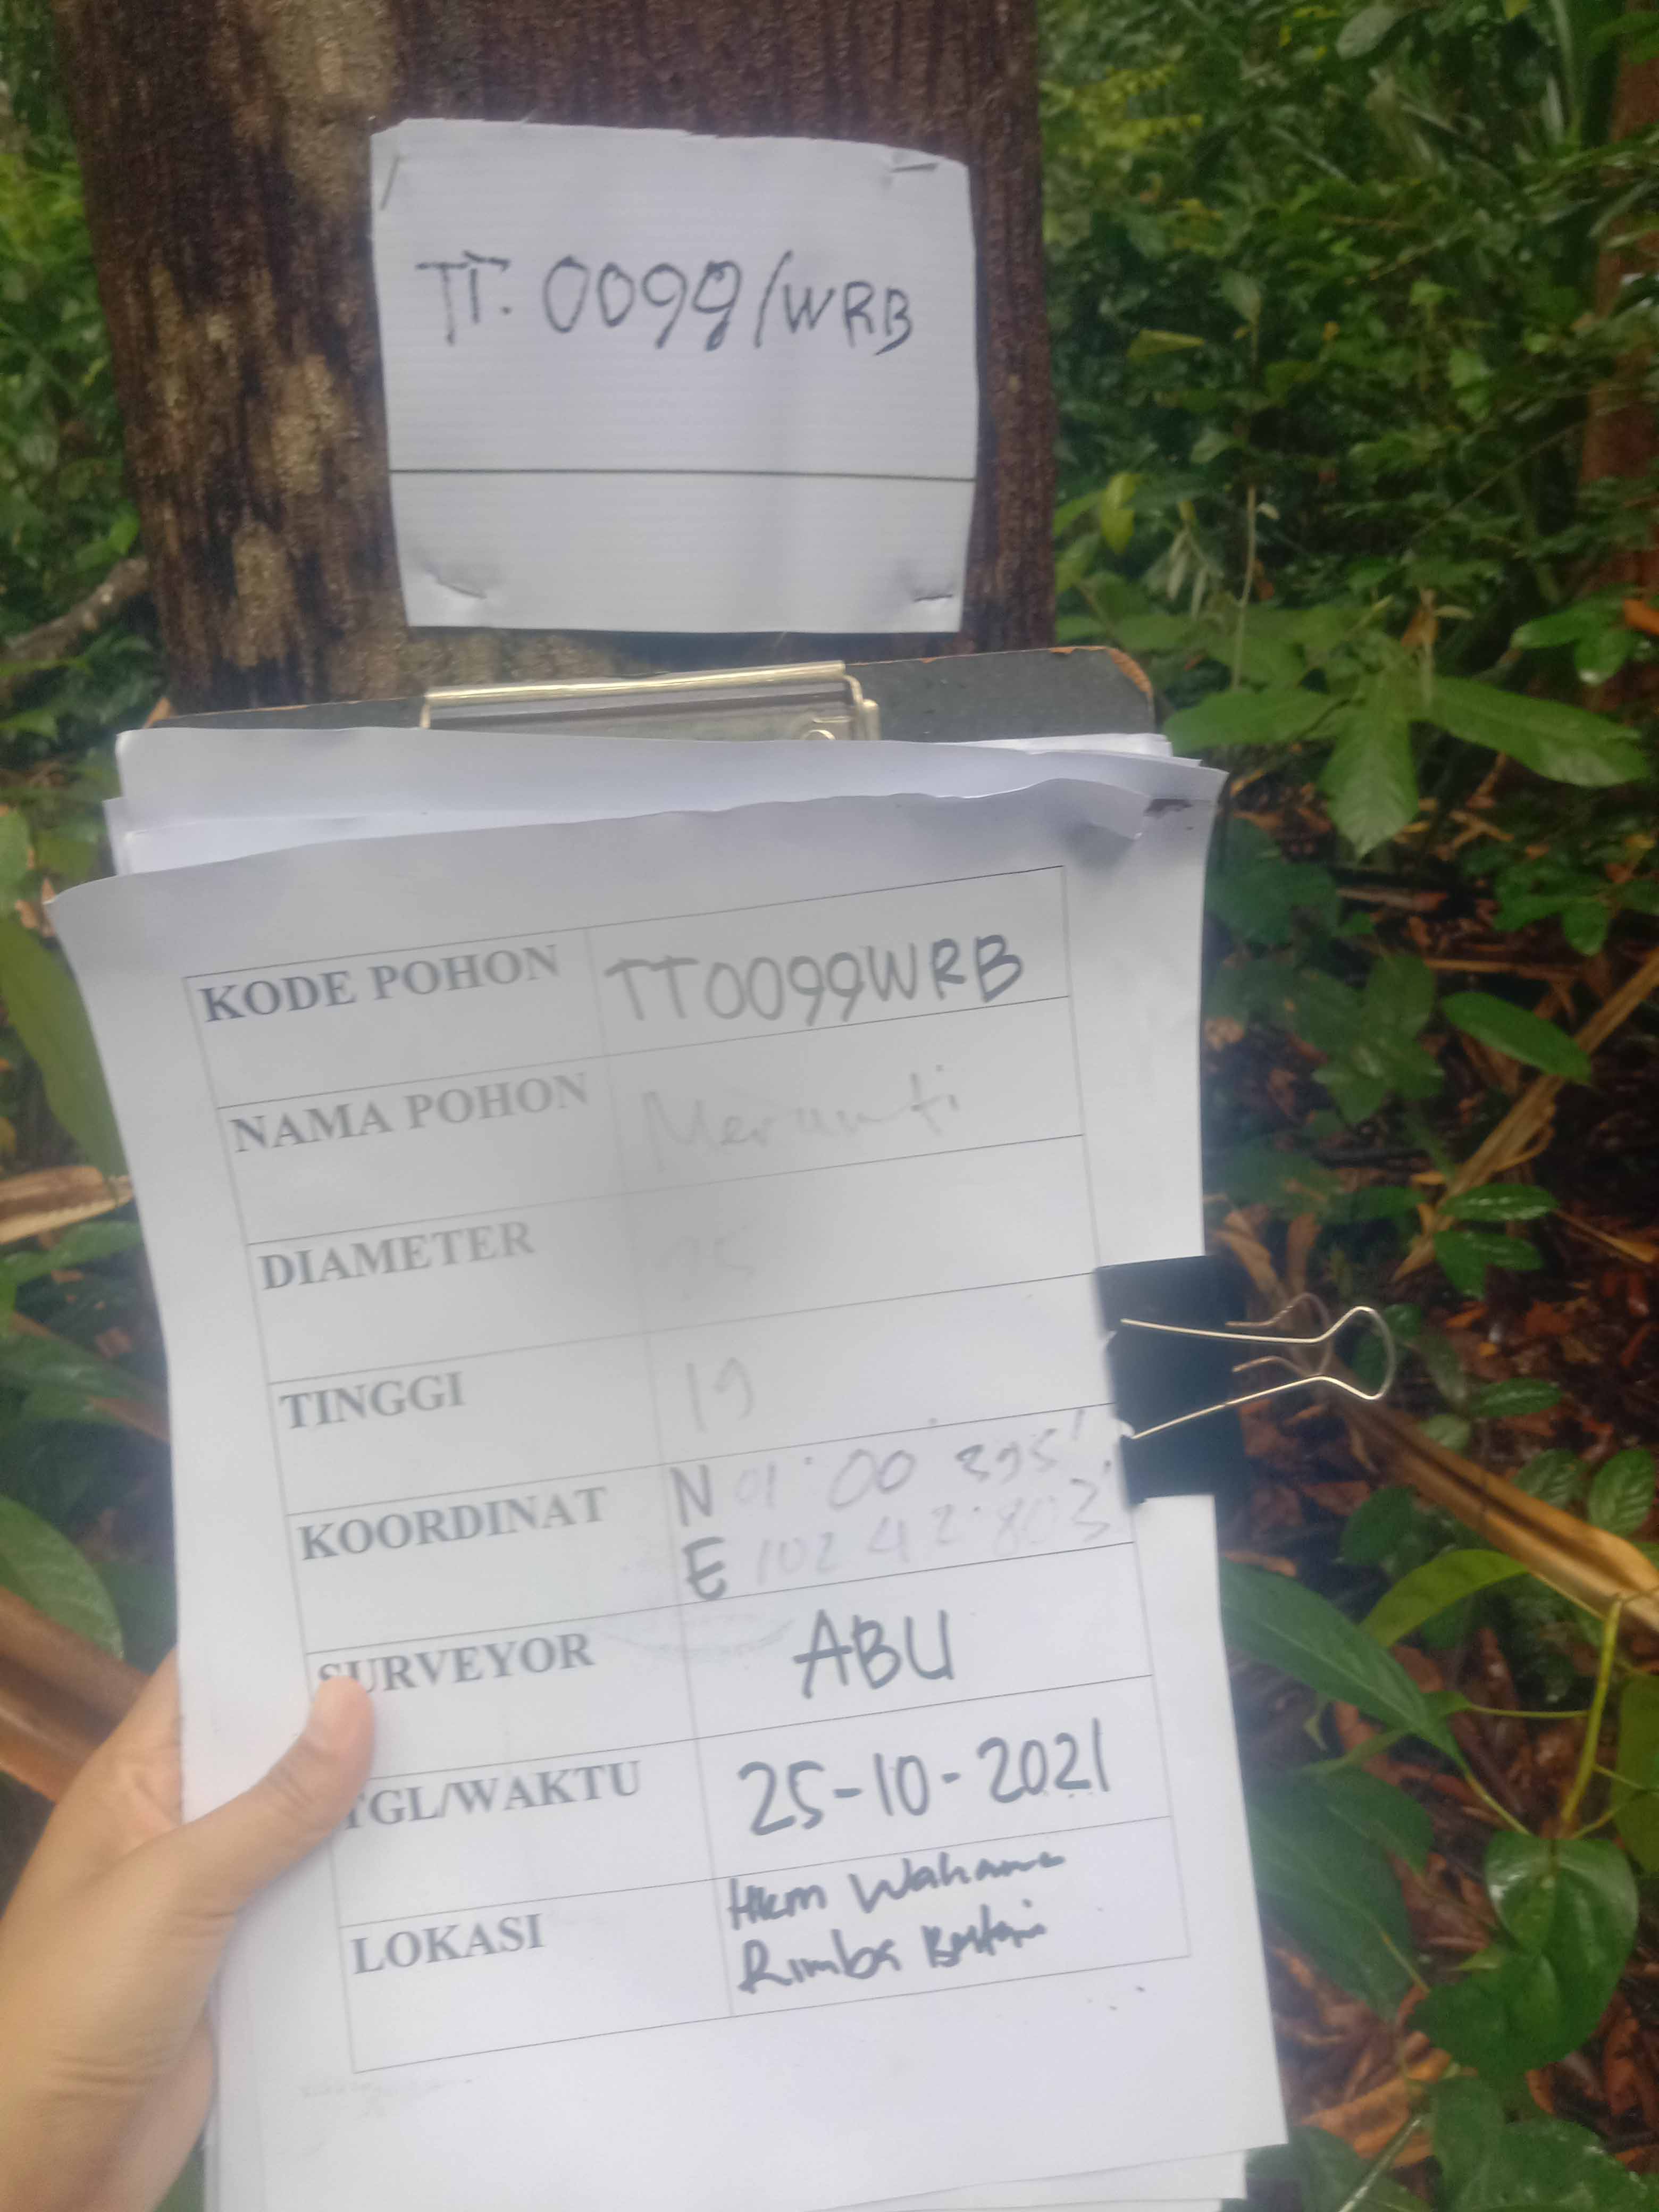 TT. 0099/WRB
KODE POHON TT0099WRB
NAMA POHON Meranti
DIAMETER
TINGGI 19
KOORDINAT N 01° 00' 395'
E 102 42.803'
SURVEYOR ABU
TGL/WAKTU 25-10-2021
LOKASI HKm Wahana
Rimba Bestari